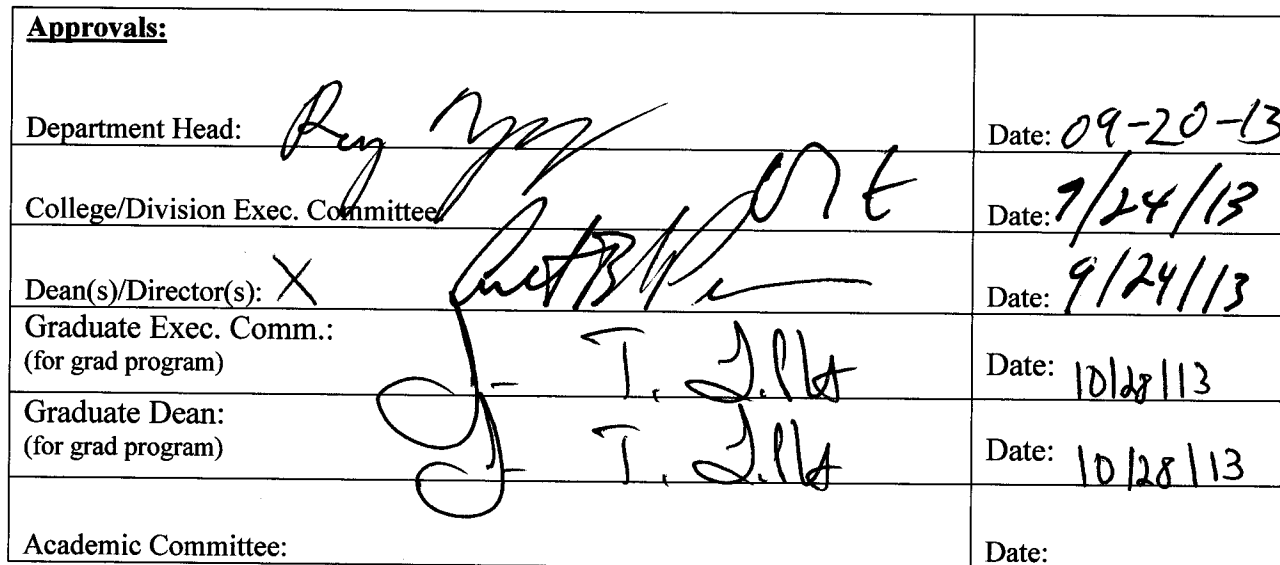 Approvals:
Department Head: Date: 09-20-13
College/Division Exec. Committee Date: 9/24/13
Dean(s)/Director(s): X Date: 9/24/13
Graduate Exec. Comm.:
(for grad program) Date: 10/28/13
Graduate Dean:
(for grad program) Date: 10/28/13
Academic Committee: Date: